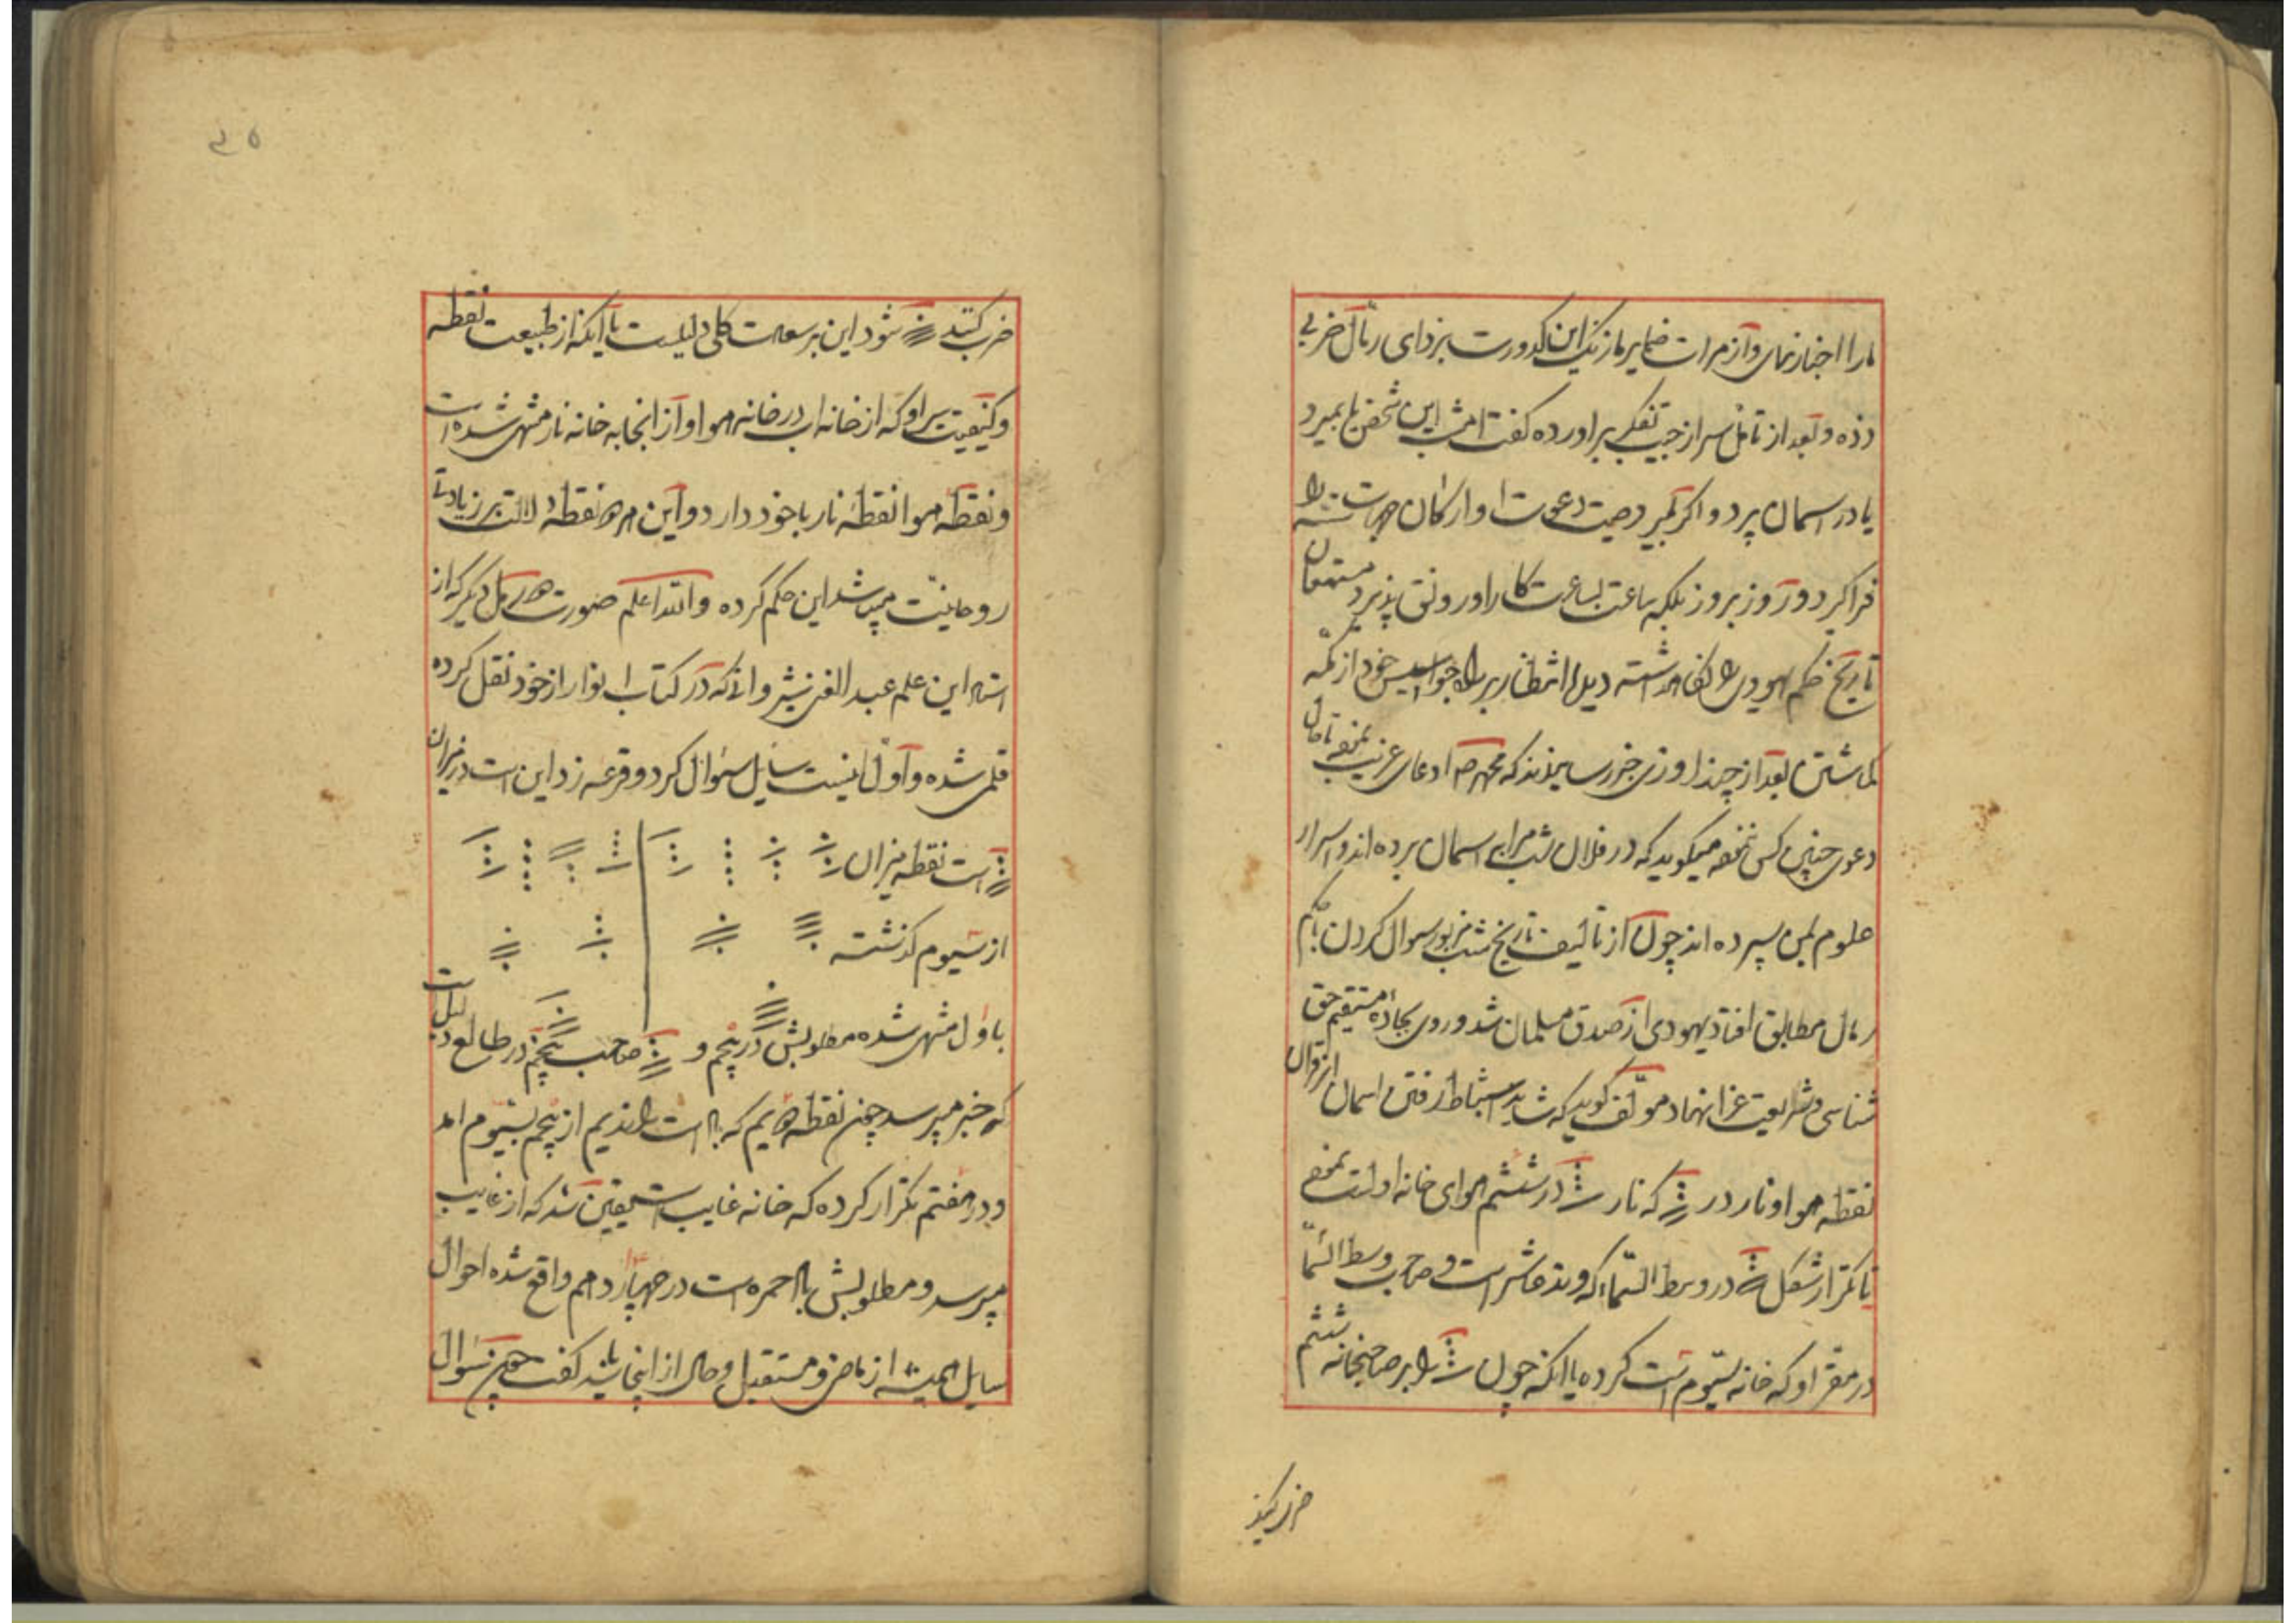 مارا اخبار نمای و از مرات ضمایر ما زنک این کدورت بزدای رمال ضربی
زده و بعد از تامل سر از جیب تفکر براورده کفت امشب این شخص یا بمیرد
یا در اسمان پرد و اکر نمیرد صیت دعوت او ارکان جهات سته را
فراکیرد و روز بروز بلکه ساعت بساعت کار او رونق پذیرد
تاریخ حکم یهودی را نکاه داشته دیدهٔ انتظار بر راه جواسیس خود از مکه
کماشتن بعد از چند روزی خبر رسانیدند که محمد ص ادعای غریب
دعوی چنین کس نموده میکوید که در فلان شب مرا بر اسمان برده اند و اسرار
علوم بمن سپرده اند چون از تالیف تاریخ شب مزبور سوال کردن با حکم
رمال مطابق افتاد یهودی از صدق مسلمان شد و روی بجادهٔ مستقیم حق
شناسی و شریعت غرا نهاد مولف کوید که شاید استنباط رفتن اسمان از قران
نقطه هوا و نار در که نار در ششم هوای خانه اولست نموده
تا تکرار شکل در وسط السماء که وتد عاشر است و صاحب وسط السماء
در مقر او که خانه سیوم است کرده یا انکه چون را بر صاحبخانه ششم
ضرب کنند
ضرب کنند شود این بر سعادت کلی دلیلست یا انکه از طبیعت نقطه
و کیفیت سیر او که از خانه اب در خانه هوا و از انجا به خانه نار منتهی شده است
و نقطه هوا نقطه نار با خود دارد و این هر دو نقطه دلالت بر زیادتی
روحانیت میباشد این حکم کرده والله اعلم صورت رمل دیکر که از
استاد این علم عبد الغنی که در کتاب انوار از خود نقل کرده
قلمی شده و اول اینست سایل سوال کرد و قرعه زد این است در میزان
است نقطه میزان
از سیوم کذشته
باول منتهی شده مطلوبش در پنجم و صاحب پنجم در طالع دلیلست
که خبر میپرسد چون نقطه دویم که است راندیم از پنجم بسیوم امد
و در هفتم تکرار کرده که خانه غایب است یقین شد که از غایب
میپرسد و مطلوبش با احمره است در چهاردهم واقع شده احوال
سایل همیشه از ماضی و مستقبل و حال از اینجا باید کفت چون سوال